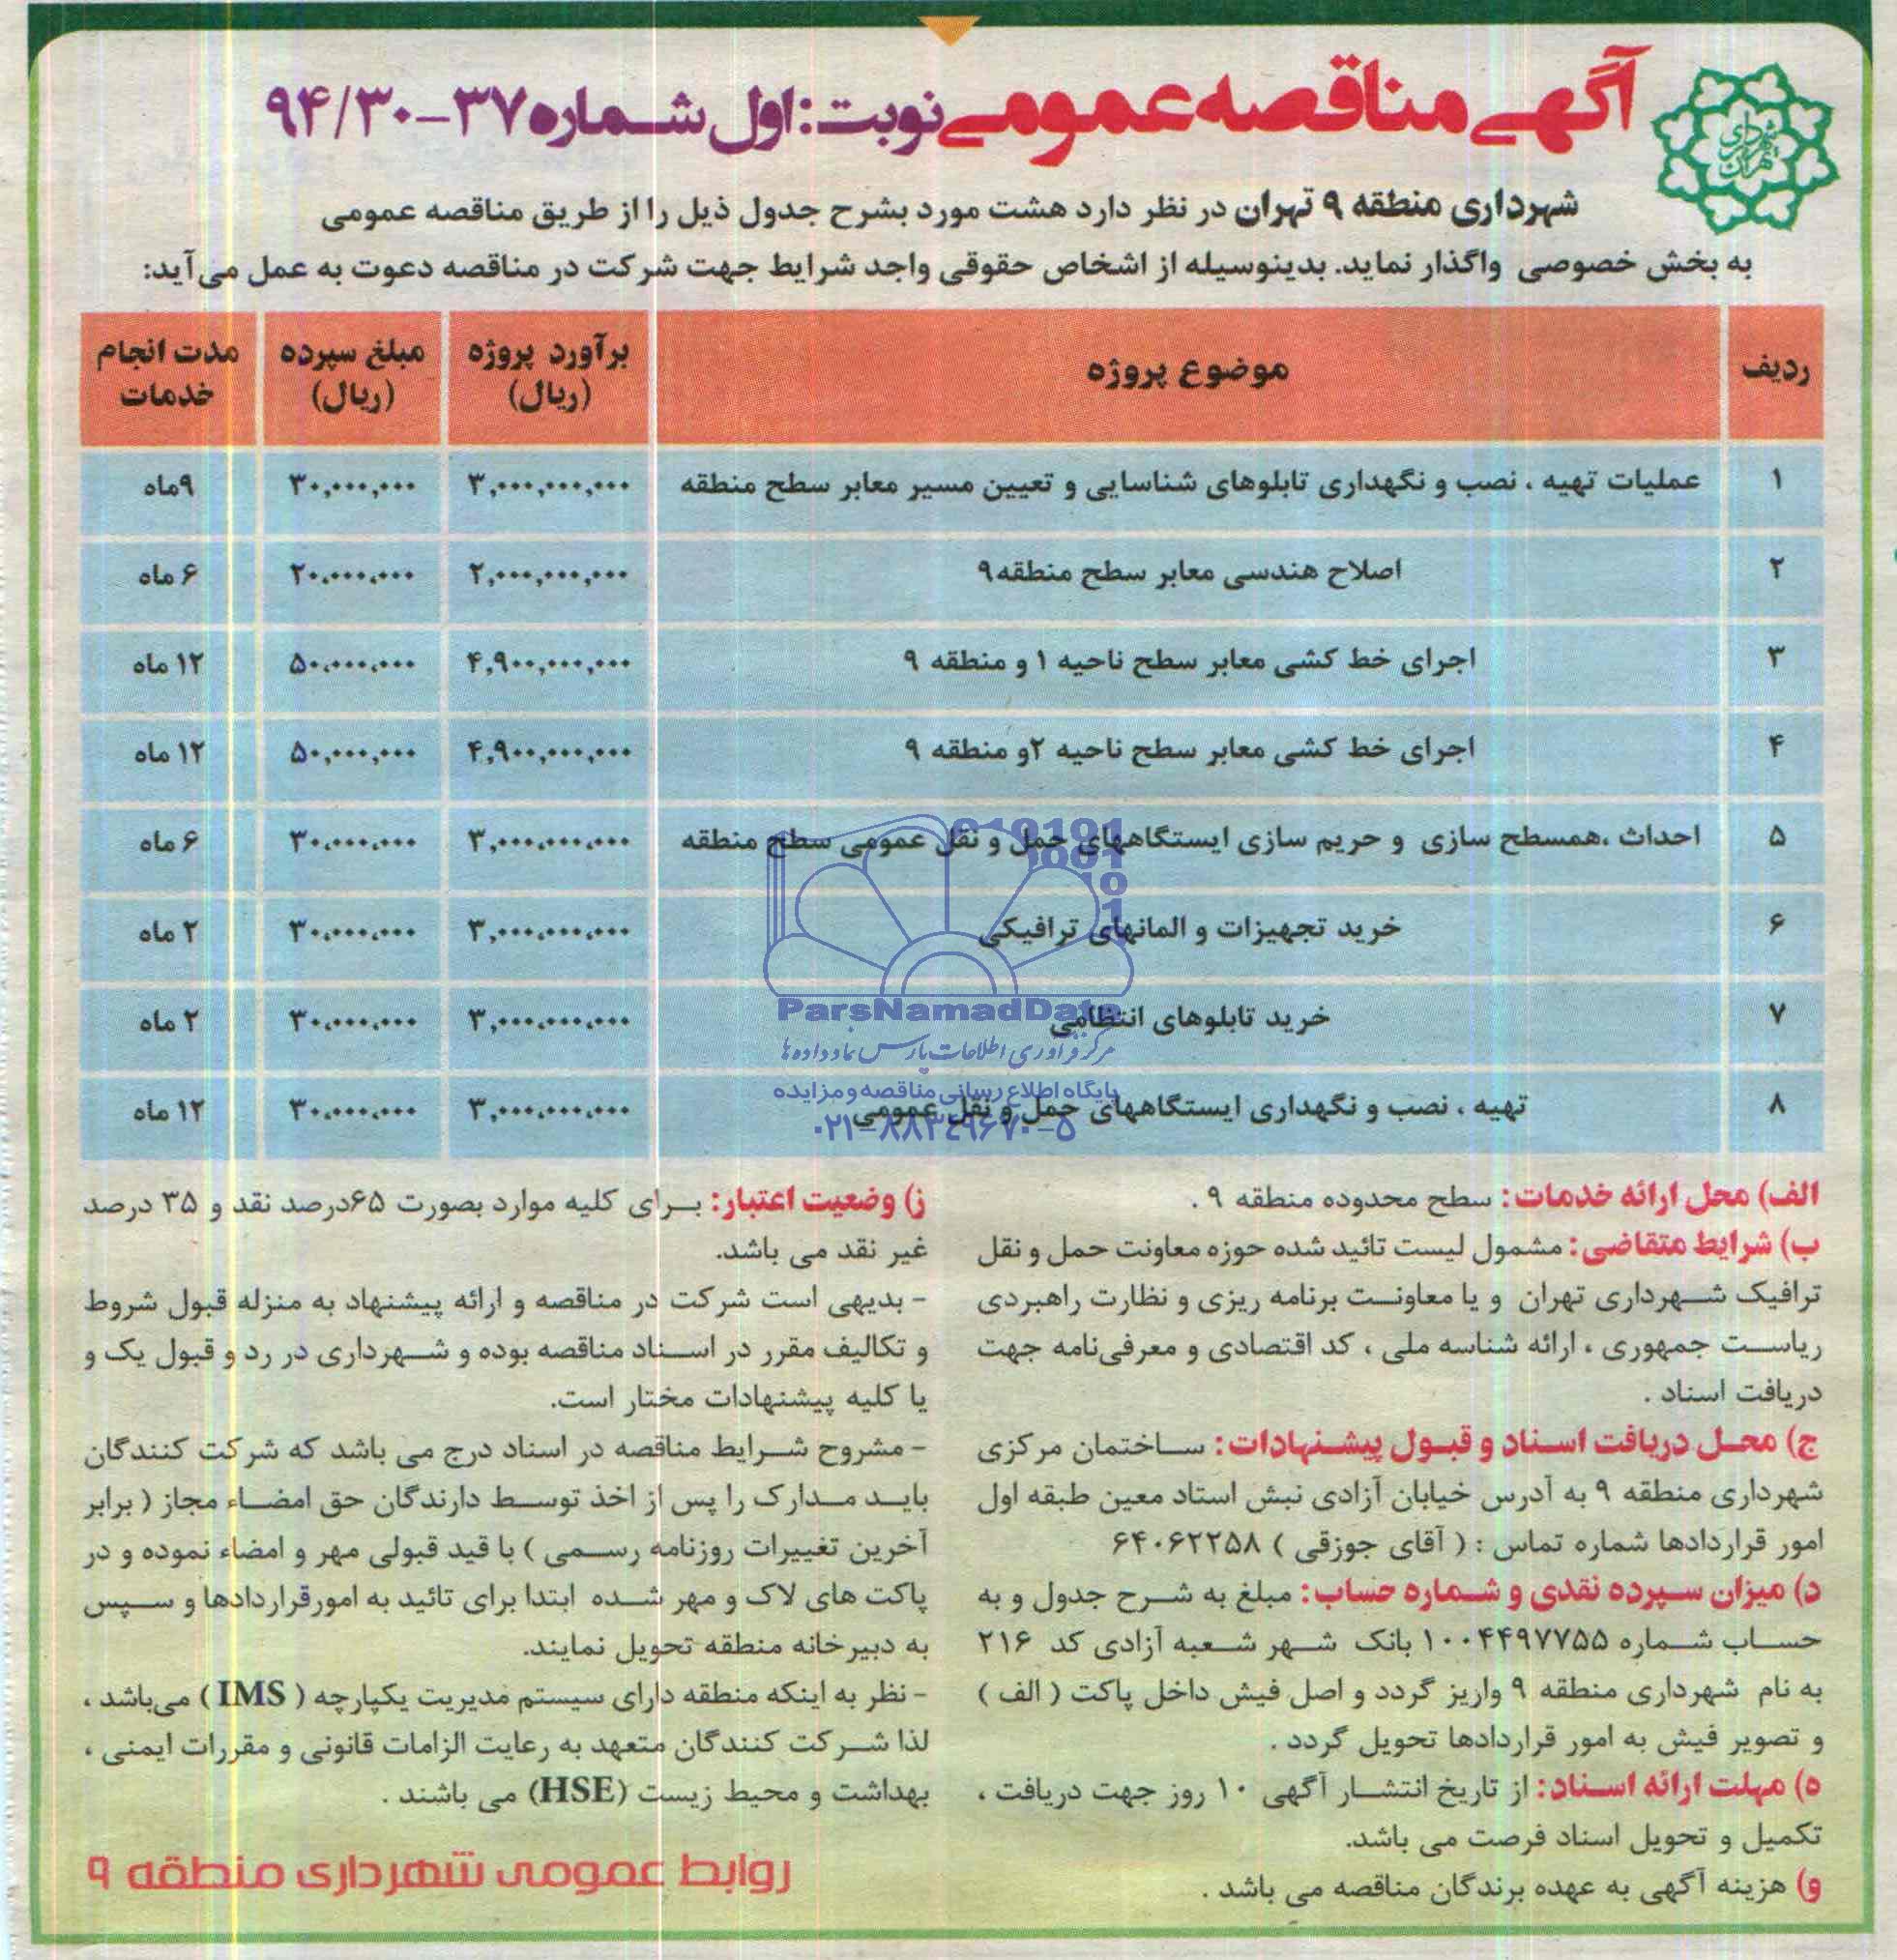 آگهی مناقصه عمومی نوبت: اول شماره ۳۷-۹۴/۳۰
شهرداری تهران
شهرداری منطقه ۹ تهران در نظر دارد هشت مورد بشرح جدول ذیل را از طریق مناقصه عمومی
به بخش خصوصی واگذار نماید. بدینوسیله از اشخاص حقوقی واجد شرایط جهت شرکت در مناقصه دعوت به عمل می‌آید:
ردیف موضوع پروژه برآورد پروژه (ریال) مبلغ سپرده (ریال) مدت انجام خدمات
۱ عملیات تهیه ، نصب و نگهداری تابلوهای شناسایی و تعیین مسیر معابر سطح منطقه ۳,۰۰۰,۰۰۰,۰۰۰ ۳۰,۰۰۰,۰۰۰ ۹ماه
۲ اصلاح هندسی معابر سطح منطقه۹ ۲,۰۰۰,۰۰۰,۰۰۰ ۲۰,۰۰۰,۰۰۰ ۶ ماه
۳ اجرای خط کشی معابر سطح ناحیه ۱ و منطقه ۹ ۴,۹۰۰,۰۰۰,۰۰۰ ۵۰,۰۰۰,۰۰۰ ۱۲ ماه
۴ اجرای خط کشی معابر سطح ناحیه ۲و منطقه ۹ ۴,۹۰۰,۰۰۰,۰۰۰ ۵۰,۰۰۰,۰۰۰ ۱۲ ماه
۵ احداث ،همسطح سازی و حریم سازی ایستگاههای حمل و نقل عمومی سطح منطقه ۳,۰۰۰,۰۰۰,۰۰۰ ۳۰,۰۰۰,۰۰۰ ۶ ماه
۶ خرید تجهیزات و المانهای ترافیکی ۳,۰۰۰,۰۰۰,۰۰۰ ۳۰,۰۰۰,۰۰۰ ۲ ماه
۷ خرید تابلوهای انتظامی ۳,۰۰۰,۰۰۰,۰۰۰ ۳۰,۰۰۰,۰۰۰ ۲ ماه
۸ تهیه ، نصب و نگهداری ایستگاههای حمل و نقل عمومی ۳,۰۰۰,۰۰۰,۰۰۰ ۳۰,۰۰۰,۰۰۰ ۱۲ ماه
ParsNamadData
مرکز فرآوری اطلاعات پارس نماد داده ها
پایگاه اطلاع رسانی مناقصه و مزایده
۰۲۱-۸۸۳۴۹۶۷۰-۵
الف) محل ارائه خدمات: سطح محدوده منطقه ۹ .
ب) شرایط متقاضی: مشمول لیست تائید شده حوزه معاونت حمل و نقل
ترافیک شهرداری تهران و یا معاونت برنامه ریزی و نظارت راهبردی
ریاست جمهوری ، ارائه شناسه ملی ، کد اقتصادی و معرفی‌نامه جهت
دریافت اسناد .
ج) محل دریافت اسناد و قبول پیشنهادات: ساختمان مرکزی
شهرداری منطقه ۹ به آدرس خیابان آزادی نبش استاد معین طبقه اول
امور قراردادها شماره تماس : ( آقای جوزقی ) ۶۴۰۶۲۲۵۸
د) میزان سپرده نقدی و شماره حساب: مبلغ به شرح جدول و به
حساب شماره ۱۰۰۴۴۹۷۷۵۵ بانک شهر شعبه آزادی کد ۲۱۶
به نام شهرداری منطقه ۹ واریز گردد و اصل فیش داخل پاکت ( الف )
و تصویر فیش به امور قراردادها تحویل گردد .
ه) مهلت ارائه اسناد: از تاریخ انتشار آگهی ۱۰ روز جهت دریافت ،
تکمیل و تحویل اسناد فرصت می باشد.
و) هزینه آگهی به عهده برندگان مناقصه می باشد .
ز) وضعیت اعتبار: برای کلیه موارد بصورت ۶۵درصد نقد و ۳۵ درصد
غیر نقد می باشد.
- بدیهی است شرکت در مناقصه و ارائه پیشنهاد به منزله قبول شروط
و تکالیف مقرر در اسناد مناقصه بوده و شهرداری در رد و قبول یک و
یا کلیه پیشنهادات مختار است.
- مشروح شرایط مناقصه در اسناد درج می باشد که شرکت کنندگان
باید مدارک را پس از اخذ توسط دارندگان حق امضاء مجاز ( برابر
آخرین تغییرات روزنامه رسمی ) با قید قبولی مهر و امضاء نموده و در
پاکت های لاک و مهر شده ابتدا برای تائید به امورقراردادها و سپس
به دبیرخانه منطقه تحویل نمایند.
- نظر به اینکه منطقه دارای سیستم مدیریت یکپارچه ( IMS ) می‌باشد ،
لذا شرکت کنندگان متعهد به رعایت الزامات قانونی و مقررات ایمنی ،
بهداشت و محیط زیست (HSE) می باشند .
روابط عمومی شهرداری منطقه ۹